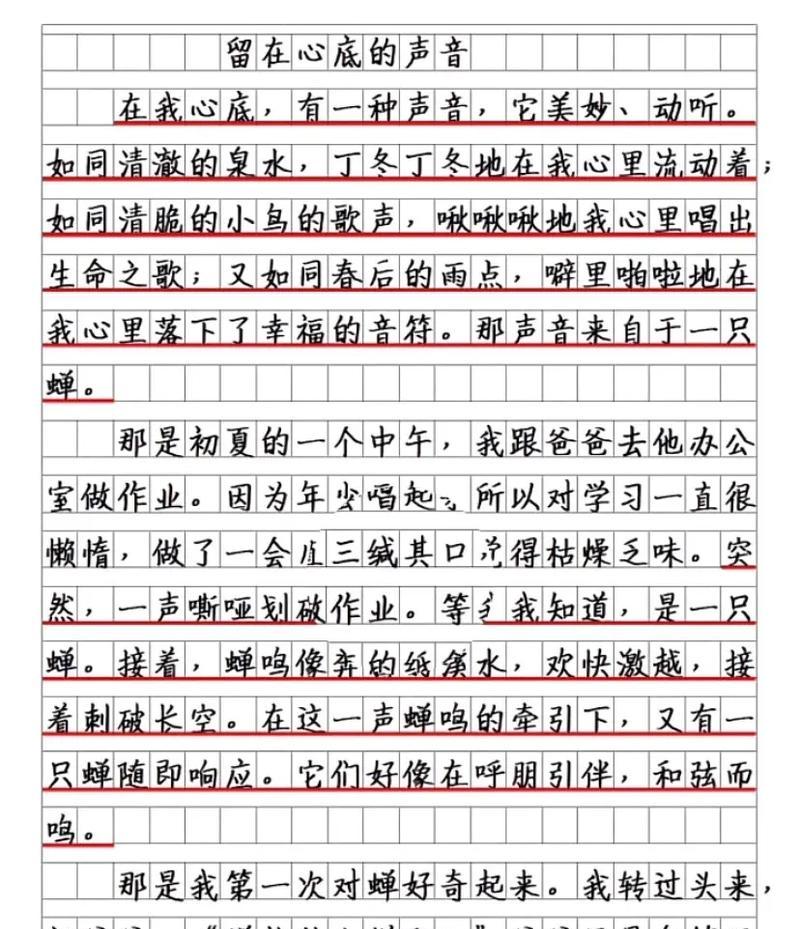 留在心底的声音
在我心底，有一种声音，它美妙、动听。
如同清澈的泉水，丁冬丁冬地在我心里流动着；
如同清脆的小鸟的歌声，啾啾啾地我心里唱出
生命之歌；又如同春后的雨点，噼里啪啦地在
我心里落下了幸福的音符。那声音来自于一只
蝉。
那是初夏的一个中午，我跟爸爸去他办公
室做作业。因为年 所以对学习一直很
懒惰，做了一会 得枯燥乏味。突
然，一声嘶哑划 作业。等 我知道，是一只
蝉。接着，蝉鸣像奔 水，欢快激越，接
着刺破长空。在这一声蝉鸣的牵引下，又有一
只蝉随即响应。它们好像在呼朋引伴，和弦而
鸣。
那是我第一次对蝉好奇起来。我转过头来，